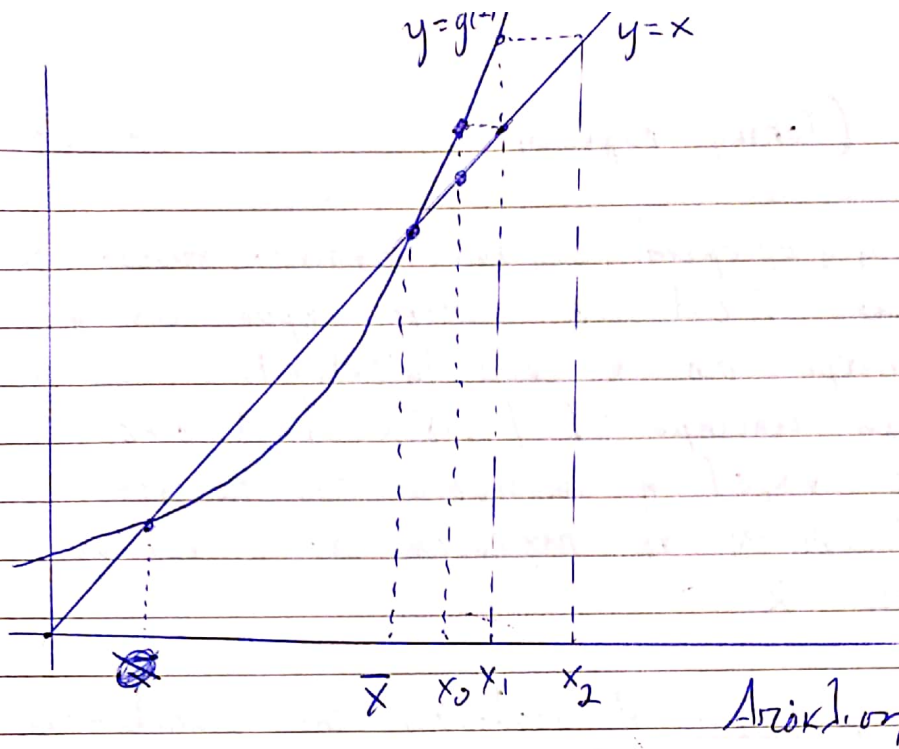 y=g(x) y=x
x̄ x₀ x₁ x₂
Απόκλιση